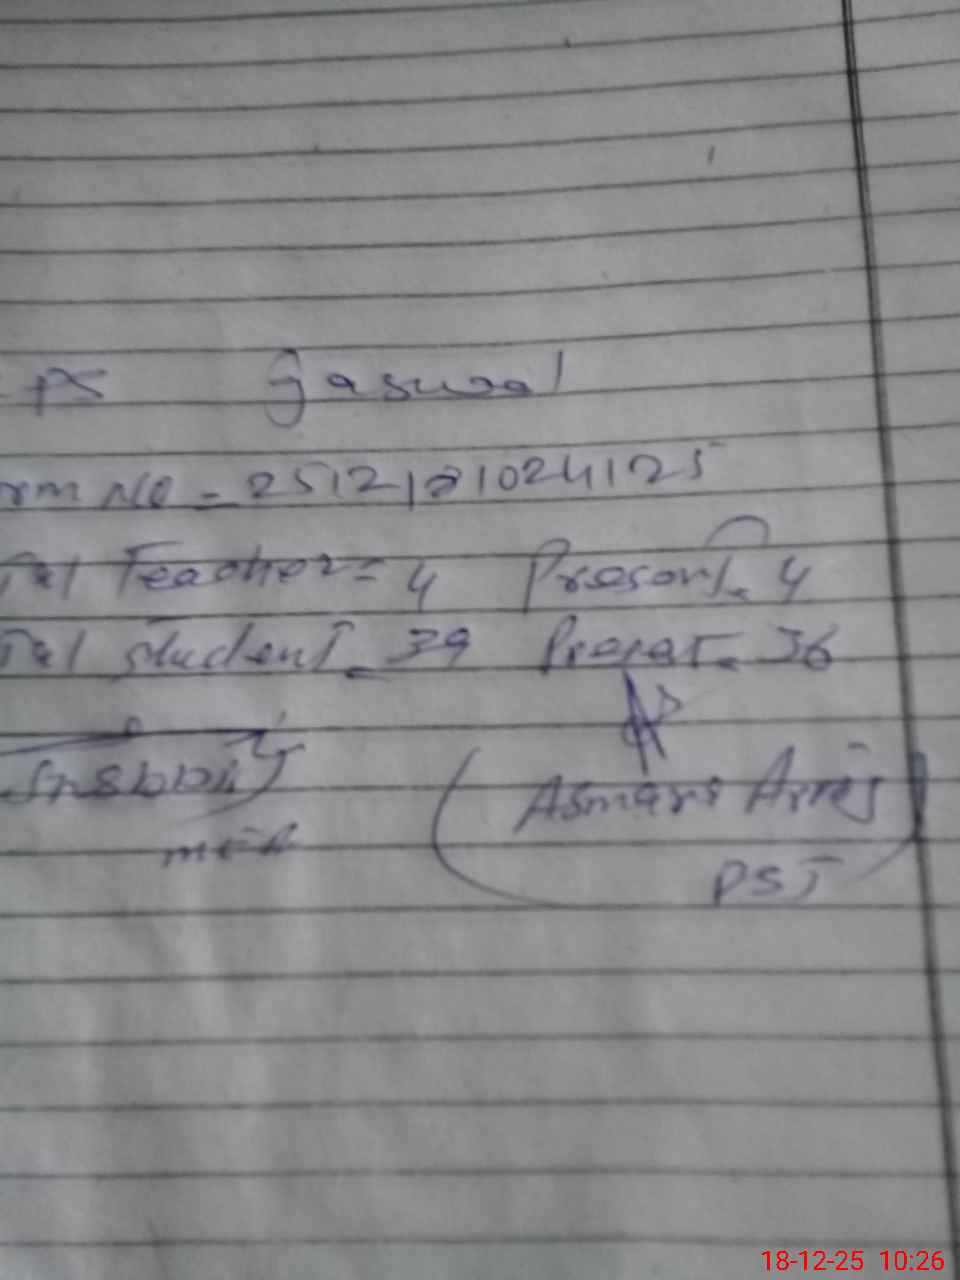 PS Gaswal
rm No - 2512181024125
Tal Teacher = 4 Present. 4
Tal student - 39 Presat - 36
Asmara
PST
18-12-25 10:26